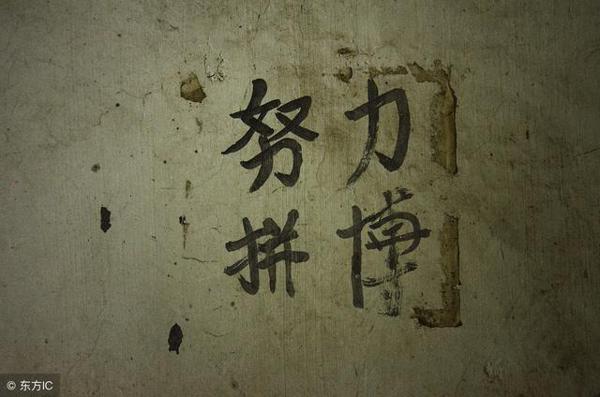 努力
拼博
© 东方IC